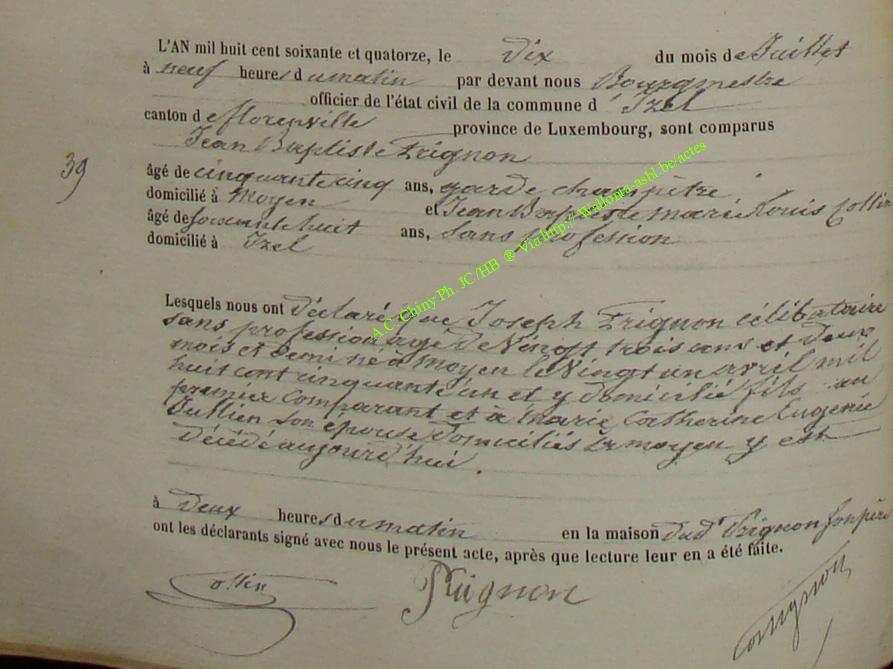 L'AN mil huit cent soixante et quatorze, le Dix du mois de Juillet
à neuf heures du matin par devant nous Bourgmestre
officier de l'état civil de la commune d' Izel
canton de florenville province de Luxembourg, sont comparus
Jean Baptiste Prignon
39
âgé de cinquante cinq ans, garde champêtre
domicilié à Moyen et Jean Baptiste marie Louis Collin
âgé de soixante huit ans, sans profession
domicilié à Izel
Lesquels nous ont déclaré que Joseph Prignon célibataire
sans profession agé de Vingt trois ans et deux
mois et demi né à moyen le Vingt un avril mil
huit cent cinquante un et y domicilié fils au
premier Comparant et à marie Catherine Eugenie
Jullien son épouse domiciliés à moyen y est
Décédé aujourd'hui.
à Deux heures du matin en la maison dud' Prignon son père
ont les déclarants signé avec nous le présent acte, après que lecture leur en a été faite.
Collin Prignon
A.C. Chiny Ph. JC/HB ® Via http://Wallonia-asbl.be/actes